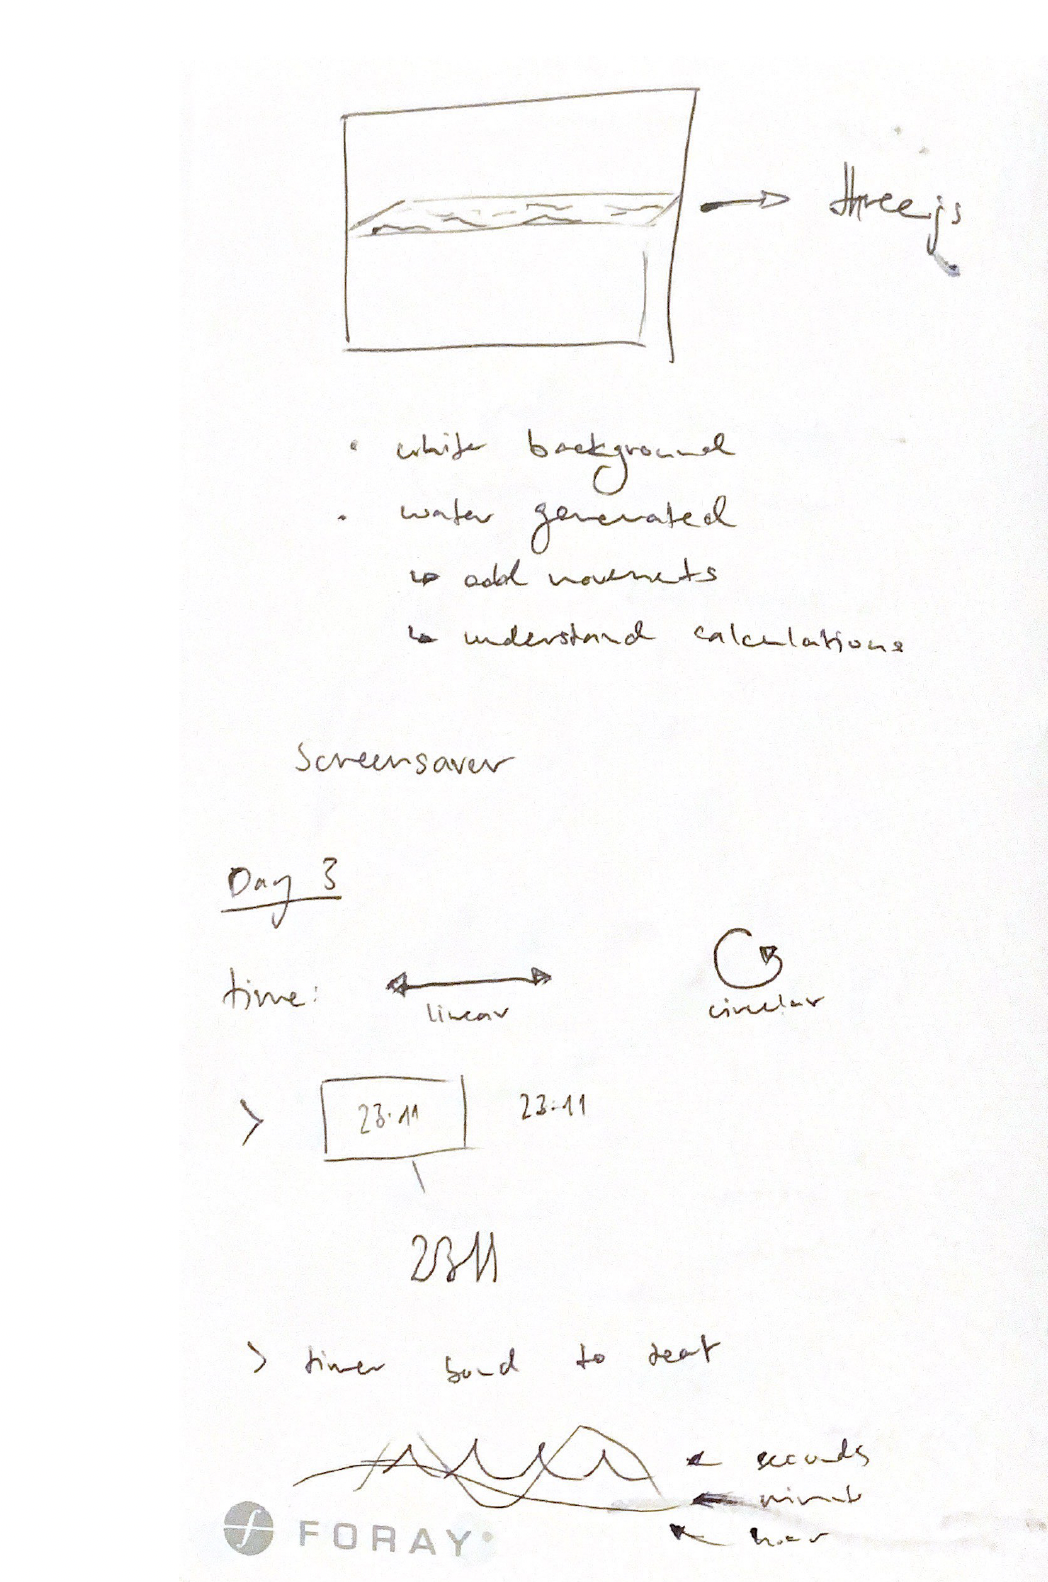 three.js
• white background
• water generated
↳ add movements
↳ understand calculations
Screensaver
Day 3
time:
linear
circular
> 23:11 23:11
2311
> timer to
seconds
minute
hour
FORAY